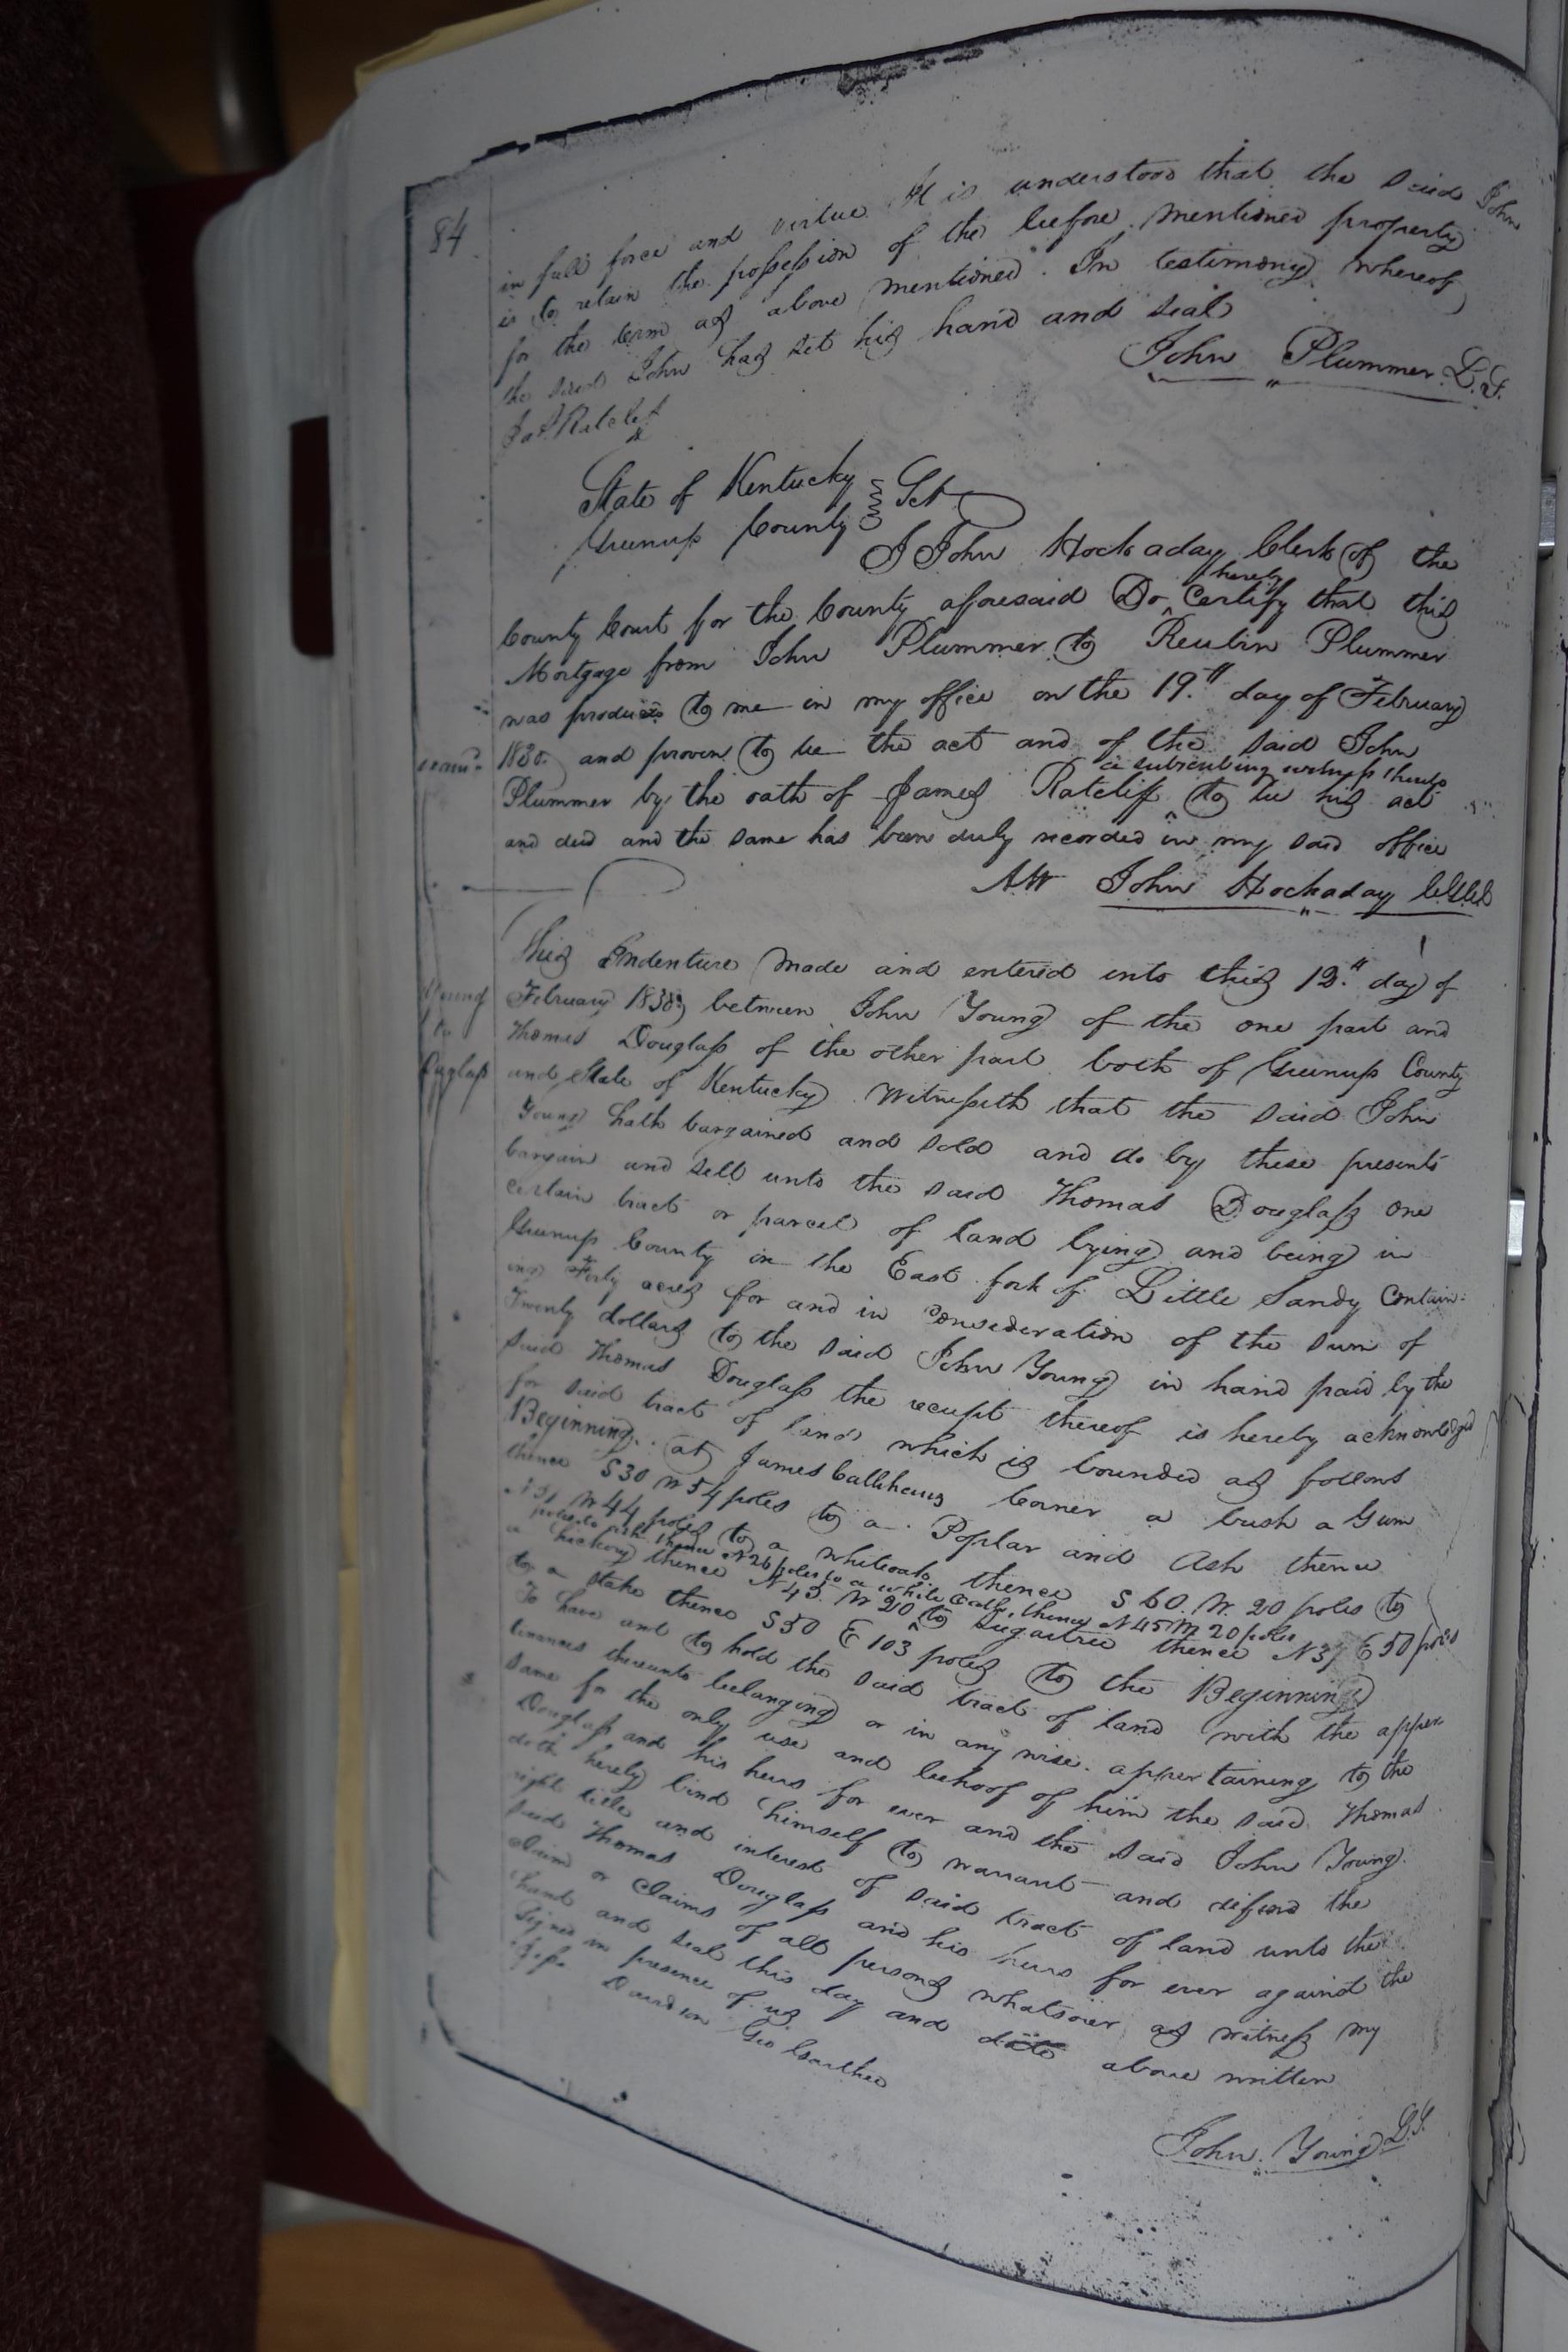 84
in full force and virtue. It is understood that the said John
is to retain the possession of the before mentioned property
for the term as above mentioned. In testimony whereof
the said John has set his hand and seal
John Plummer L.S.
Jas. Ratcliff
State of Kentucky } Sct
Greenup County
I John Hockaday Clerk of the
County Court for the County aforesaid Do hereby Certify that this
Mortgage from John Plummer to Reubin Plummer
was produced to me in my office on the 19th day of February
and proven to be the act and of the said John
Plummer by the oath of James Ratcliff a subscribing witness thereto to be his act
and deed and the same has been duly recorded in my said office
Att John Hockaday
This Indenture made and entered into this day of
Young
to
Duglass
February between John Young of the one part and
Thomas Douglass of the other part both of Greenup County
and State of Kentucky Witnesseth that the said John
Young hath bargained and sold and do by these presents
bargain and sell unto the said Thomas Douglass one
certain tract or parcel of land lying and being in
Greenup County in the East fork of Little Sandy Contain-
ing Forty acres for and in consideration of the sum of
Twenty dollars to the said John Young in hand paid by the
said Thomas Douglass the receipt thereof is hereby acknowledged
for said tract of land which is bounded as follows
Beginning at James Callihans Corner a bush a Gum
thence S 30 W 54 poles to a Poplar and Ash thence
W 44 poles to a whiteoak thence S 60. W. 20 poles to
a hickory thence N 26 poles to a white oak, thence N 45 W 20 poles
thence N 45. W 20 to Sugartree thence E 50 poles
to a stake thence S 50 E 103 poles to the Beginning
To have and to hold the said tract of land with the apper
tenances thereunto belonging or in any wise appertaining to the
same for the only use and behoof of him the said Thomas
Douglass and his heirs for ever and the said John Young
doth hereby bind himself to warrant and defend the
right title and interest of said tract of land unto the
said Thomas Douglass and his heirs for ever against the
claim or claims of all persons whatsoever as witness my
hand and seal this day and date above written
Signed in presence of us
Davidson Geo
John Young L.S.